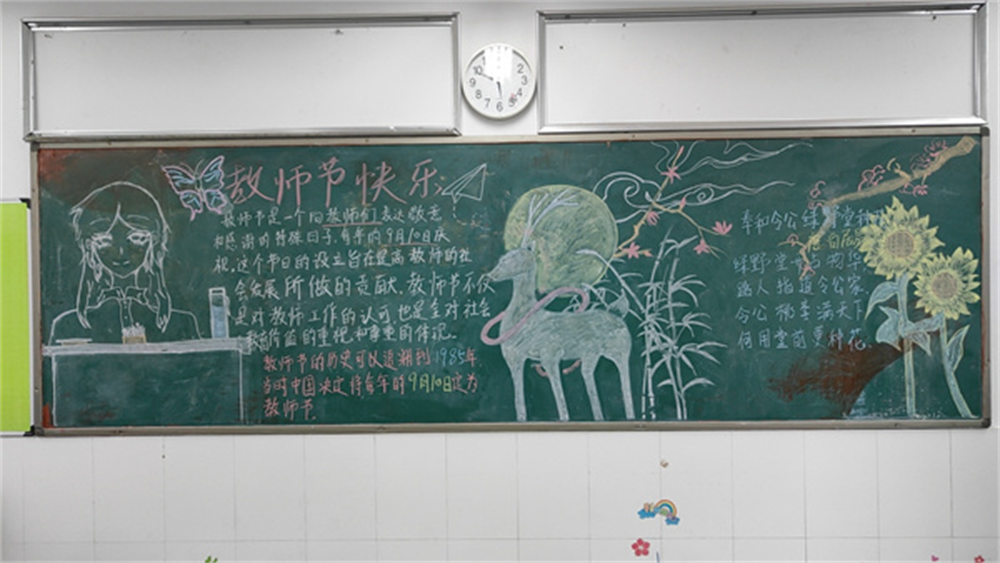 教师节快乐
教师节是一个向教师们表达敬意
和感谢的特殊日子,每年的9月10日庆
祝,这个节日的设立旨在提高教师的社
会发展所做的贡献.教师节不仅
是对教师工作的认可,也是全对社会
教育价值的重视和尊重的体现。
教师节的历史可以追溯到1985年,
当时中国决定将每年的9月10日定为
教师节.
奉和令公绿野堂种花
白居易
绿野堂开占物华
路人指道令公家
令公桃李满天下
何用堂前更种花.
12
1
2
3
4
5
6
7
8
9
10
11